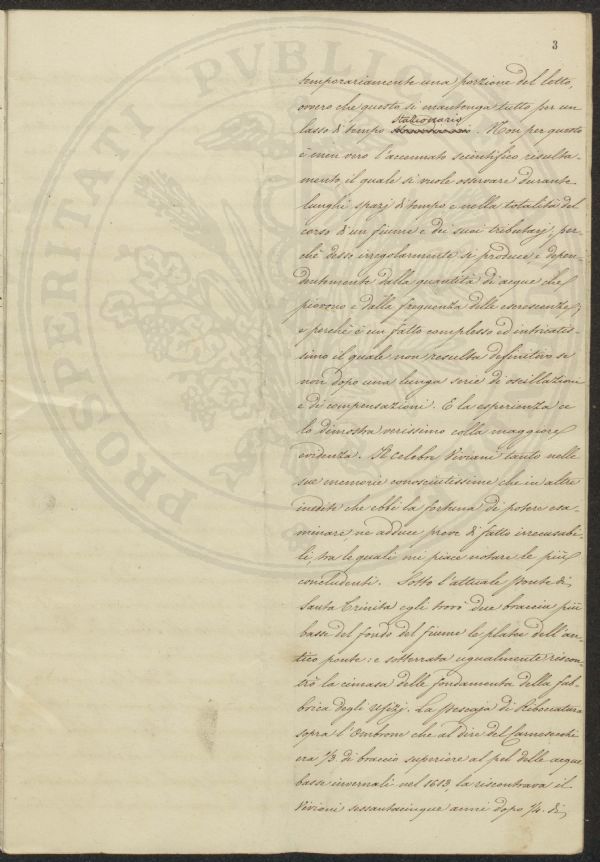 3
temporariamente una porzione del letto,
ovvero che questo si mantenga tutto per un
lasso di tempo stazionario. Non per questo
è men vero l'accennato scientifico resulta-
mento, il quale si vuole osservare durante
lunghi spazj di tempo e nella totalità del
corso d'un fiume e dei suoi tributarj, per-
chè desso irregolarmente si produce, e dipen-
dentemente dalla quantità di acque che
piovono e dalla frequenza delle escrescenze,
e perchè è un fatto complesso ed intricatis-
simo il quale non resulta definitivo se
non dopo una lunga serie di oscillazioni
e di compensazioni. E la esperienza ce
lo dimostra verissimo colla maggiore
evidenza. Il celebre Viviani tanto nelle
sue memorie conosciutissime che in altre
inedite che ebbi la fortuna di potere esa-
minare, ne adduce prove di fatto irrecusabi-
li, tra le quali mi piace notare le più
concludenti. Sotto l'attuale Ponte di
Santa Trinita egli trovò due braccia più
basse del fondo del fiume le platee dell'an-
tico ponte: e sotterrata ugualmente riscon-
trò la cimasa delle fondamenta della fab-
brica degli Ufizj. La Pescaja di Riboccatura
sopra l'Ombrone che al dire del Carnesecchi
era 1/3 di braccio superiore al pel delle acque
basse invernali nel 1613, la riscontrava il
Viviani sessantacinque anni dopo 1/4 di
PROSPERITATI PUBLICAE